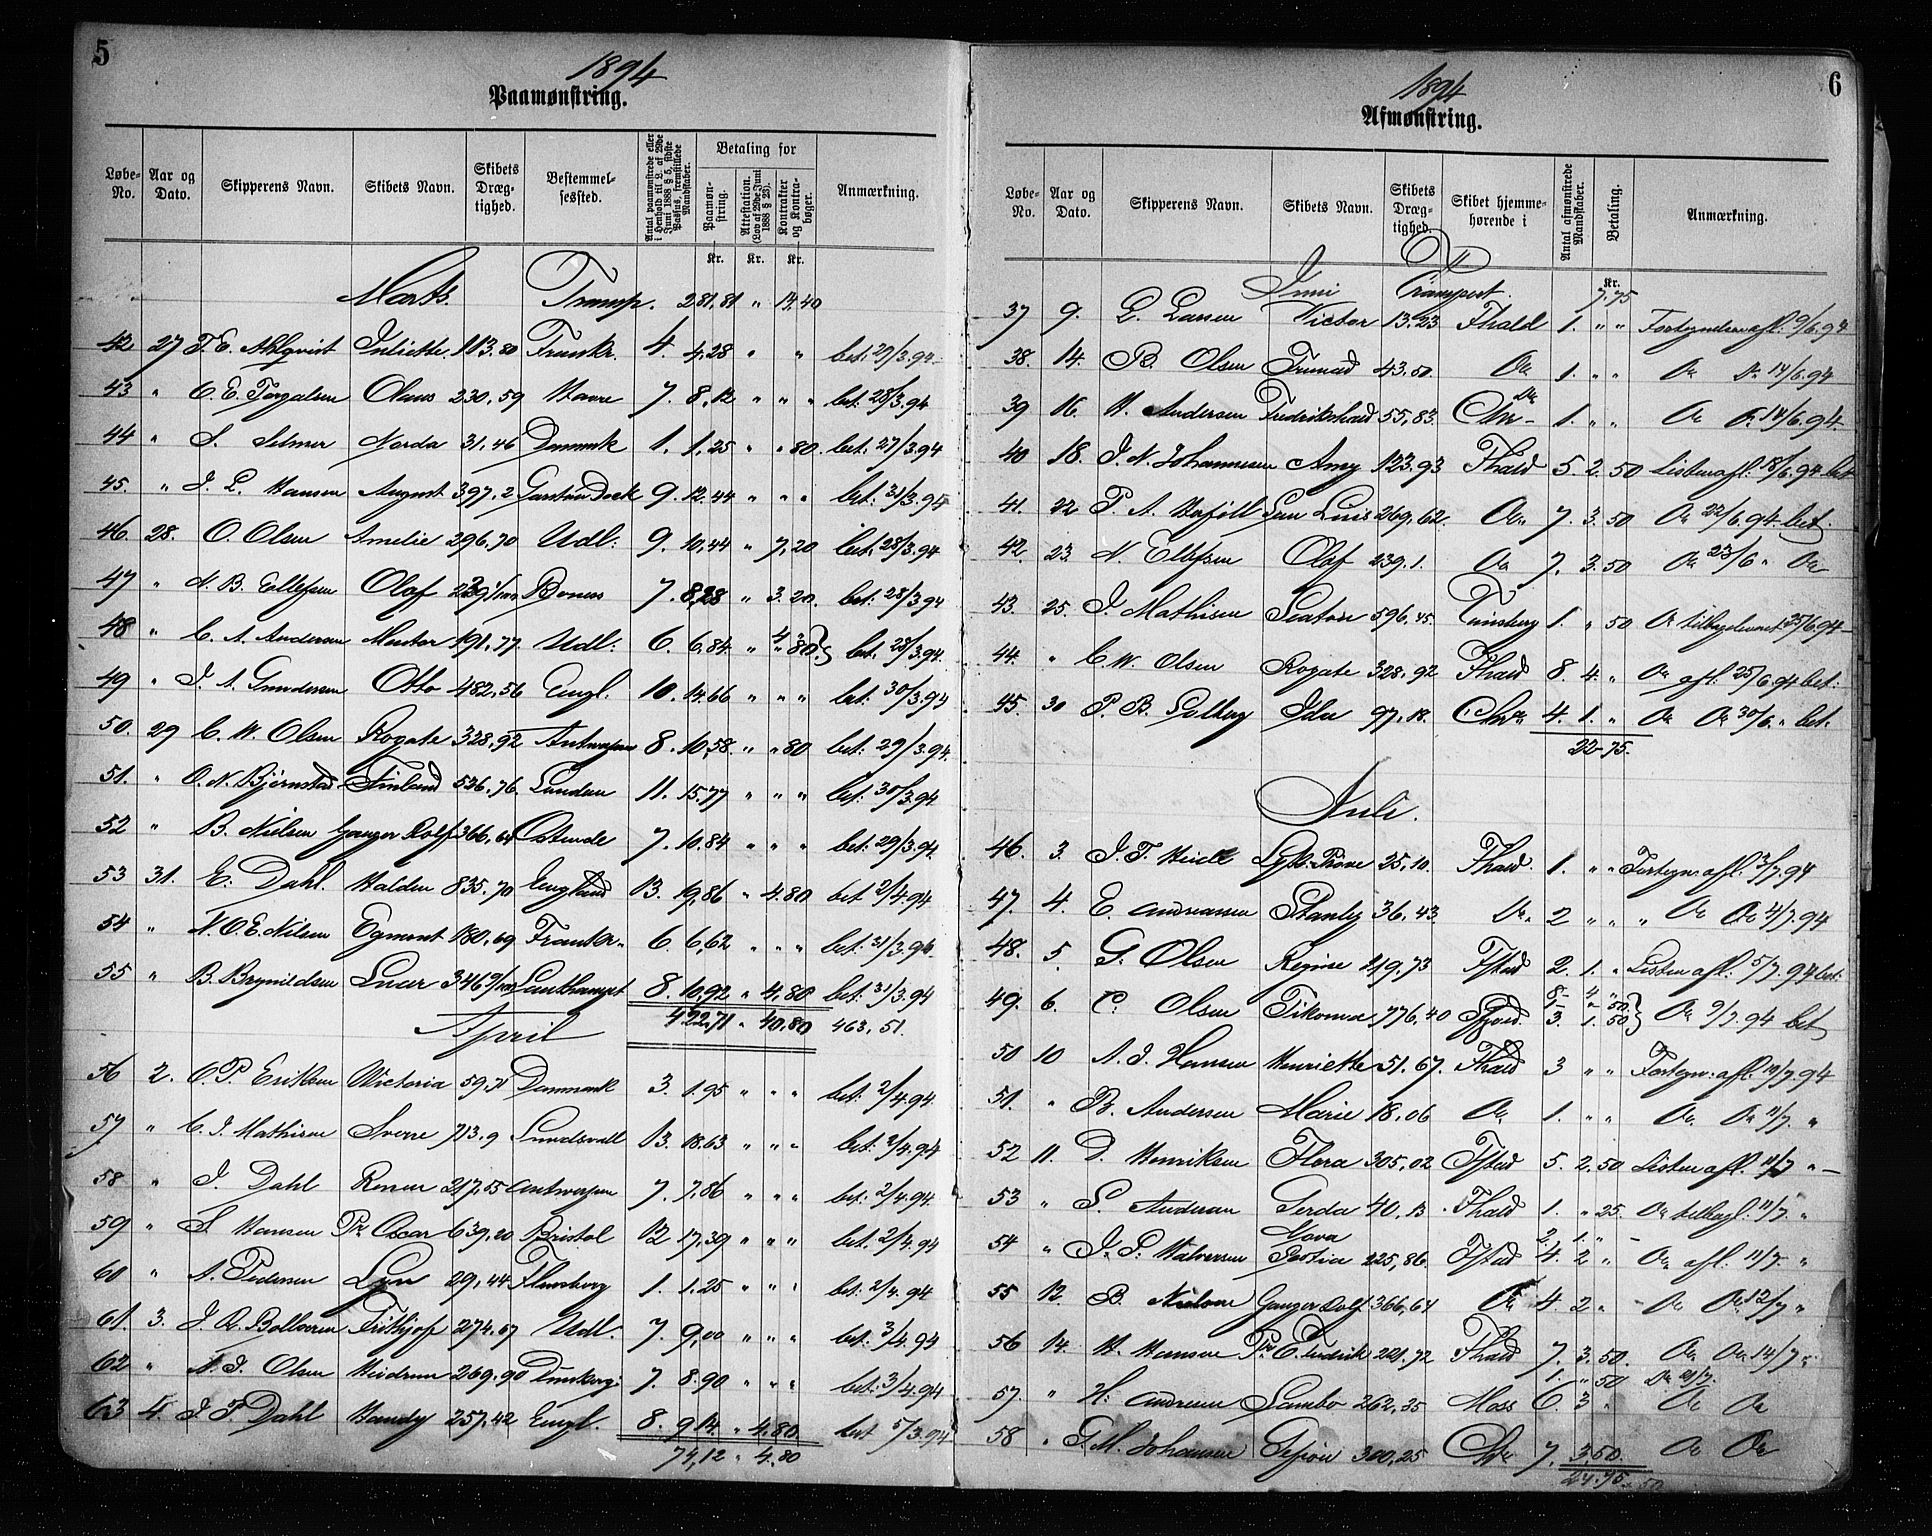 5
1894
Paamønstring.
Løbe-No. Aar og Dato. Skipperens Navn. Skibets Navn. Skibets Dræg-tighed. Bestemmel-sessted. Antal paamønstrede eller i Henhold til L. af 29de Juni 1888 § 5, sidste Passus, fremstillede Mandskaber. Betaling for Paamøn-string. Attestation. (Lov af 29de Juni 1888 § 23). Kontrakter og Kontra-bøger. Anmærkning.
Kr. Kr. Kr.
Marts. Transp. 281,81 " 14,40
42 27 F. E. Ahlqvist Juliette 113.80 Frankr. 4. 4,28 " " bet: 29/3.94
43 " C. E. Torgalsen Olaus 230,59 Havre 7. 8,12 " " " bet: 28/3.94
44 " S. Selmer Norda 31,46 Danmark 1. 1,25 " " 80. bet: 27/3.94
45. " J. L. Hansen August 397,2 Garston Dock 9. 12.44 " " " bet: 31/3.94
46. 28. O. Olsen Amelie 296,70 Udl: 9. 10,44 " 7,20 bet: 28/3.94
47 " N. B. Ellefsen Olaf 239 1/100 Boness 7. 8,28 " 3.20. bet: 28/3.94
48 " C. A. Andersen Mentor 191,77 Udl: 6. 6,84 " 4 " 80 } bet: 28/3.94.
49 " J. A. Gundersen Otto 482,56 Engl. 10. 14.66 " " " bet: 30/3.94
50. 29 C. W. Olsen Rogate 328,92 Antwerpen 8. 10,58. " " 80 bet: 29/3.94.
51. " O. N. Bjørnstad Finland 536,76. London 11. 15,77 " " " bet: 30/3.94
52 " B. Nielsen Ganger Rolf 366,64 Ostende 7. 10.84 " " " bet: 29/3.94.
53 31. E. Dahl. Halden 835.70 England 13. 19,86 " 4.80 bet 2/4.94
54 " N. O. E. Nilsen Egmont 180,69 Frankr. 6. 6,62 " " " bet: 31/3.94
55 " B. Brynildsen Lucer 346 9/100 Southampt 8. 10,92 " 4,80 bet: 31/3.94
April 422,71 " 40,80 463,51.
56 2. O. P. Eriksen Victoria 59,71 Danmark 3. 1.95 " " " bet: 2/4.94.
57 " C. J. Mathisen Sverre 713,9 Sundsvall 13. 18.63 " " " bet: 2/4.94
58 " J. Dahl Rerum 217,55 Antwerpen 7. 7,86 " " " bet: 2/4.94.
59 " S. Hansen Pr. Oscar 639,20 Bristol 12 17,39 " " " bet. 2/4.94
60 " A. Pedersen Lyn 29,44 Flensborg 1. 1,25 " " " bet: 2/4.94
61. 3. J. A. Bollvaren Frithjof 274.67 Udl. 7. 9,00 " " " bet: 3/4.94
62 " N. J. Olsen Heidrun 269.90 Dunkerq: 7. 8.90 " " " bet: 3/4.94
63 4. J. F. Dahl Handy 257,42 Engl. 8. 9,14. " 4.80. bet 5/3.94
74,12 " 4.80
6
1894
Afmønstring.
Løbe-No. Aar og Dato. Skipperens Navn. Skibets Navn. Skibets Dræg-tighed. Skibet hjemme-hørende i Antal afmønstrede Mandskaber. Betaling. Anmærkning.
Kr.
Juni Transport. 7.75
37 9. L. Larsen Victor 13.23 Fhald 1. " " Fortegnelsen afl. 9/6.94
38. 14. B. Olsen Trumad 43,50. Do 1. " " Do Do 14/6.94
39 16. H. Andersen Fredrikshald 55,83. Chr. 1. " " Do Do 14/6.94.
40 18. J. N. Johannesen Amy 123.93 Fhald 5. 2. 50 Listen afl. 18/6.94 bet
41. 22 P. A. Hoføll San Luis 269,62. Do 7. 3. 50 Do 22/6.94. bet.
42. 23. N. Ellefsen Olaf 239.1. Do 7. 3. 50 Do 23/6 " Do
43. 25. J. Mathisen Seaton 596,45. Tønsberg 1. " 50 Do tilbagelevert 25/6.94
44. " C. W. Olsen Rogate 328,92 Fhald 8. 4. " Do afl. 25/6.94 bet:
45. 30 P. B. Solberg Ida 97,18. Chra 4. 1. " Do Do 30/6. " bet.
22-75.
Juli.
46. 3. J. T. Heide Lykk. Prøve 25,10. Fhald. 1. " " Fortegn: afl. 3/7.94
47. 4. E. Andreassen Stanley 36,43 Do 2 " " " Do Do 4/7.94
48. 5. G. Olsen Regine 219,73 Fstad 2. 1. " Listen afl. 5/7.94 bet:
49. 6. C. Olsen Tikoma 776,40 8- 4 " 3. 1. 50 } Do 9/7.94 bet
50 10 A. J. Hansen Henriette 51.67. Fhald 3 " " Fortegn: afl. 10/7.94
51. " B. Andersen Marie 18,06 Do 1. " " Do Do 11/7. "
52 11. D. Henriksen Flora 305,02 Fstad 5. 2.50 Listen afl. 11/7 "
53 " S. Andersen Gerda 40,13. Fhald 1. " 25. Do tilbagl: 11/7. "
54 " J. P. Halvorsen Nova Portia 225,86 Fstad 2. 1. " 4. 2 " Do afl. 11/7. "
55 12. B. Nielsen Ganger Rolf 366,64 Do 4. 2 " Do Do 12/7 "
56 14. H. Hansen Pr. C. Fredrik 221.72 Fhald 7. 3.50. Do Do 14/7 "
1. " 50 Do 21/7.
57. " H. Andresen Sambo 262,35 Moss 6. 3 " Do Do
58 " G. M. Johansen Gefion 300,25 Chra 7. 3.50. Do Do
24.75